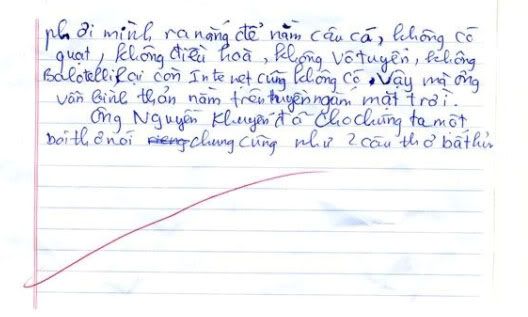 phơi mình ra nắng để nằm câu cá, không có
quạt, không điều hoà, không vô tuyến, không
Balotelli lại còn Intenet cũng không có. Vậy mà ông
vẫn bình thản nằm trên thuyền ngắm mặt trời.
Ông Nguyễn Khuyến đã cho chúng ta một
bài thơ nói chung cũng như 2 câu thơ bất hủ